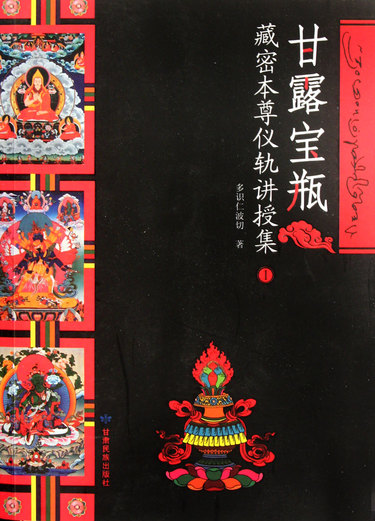 甘露宝瓶
藏密本尊仪轨讲授集
1
多识仁波切 著
甘肃民族出版社